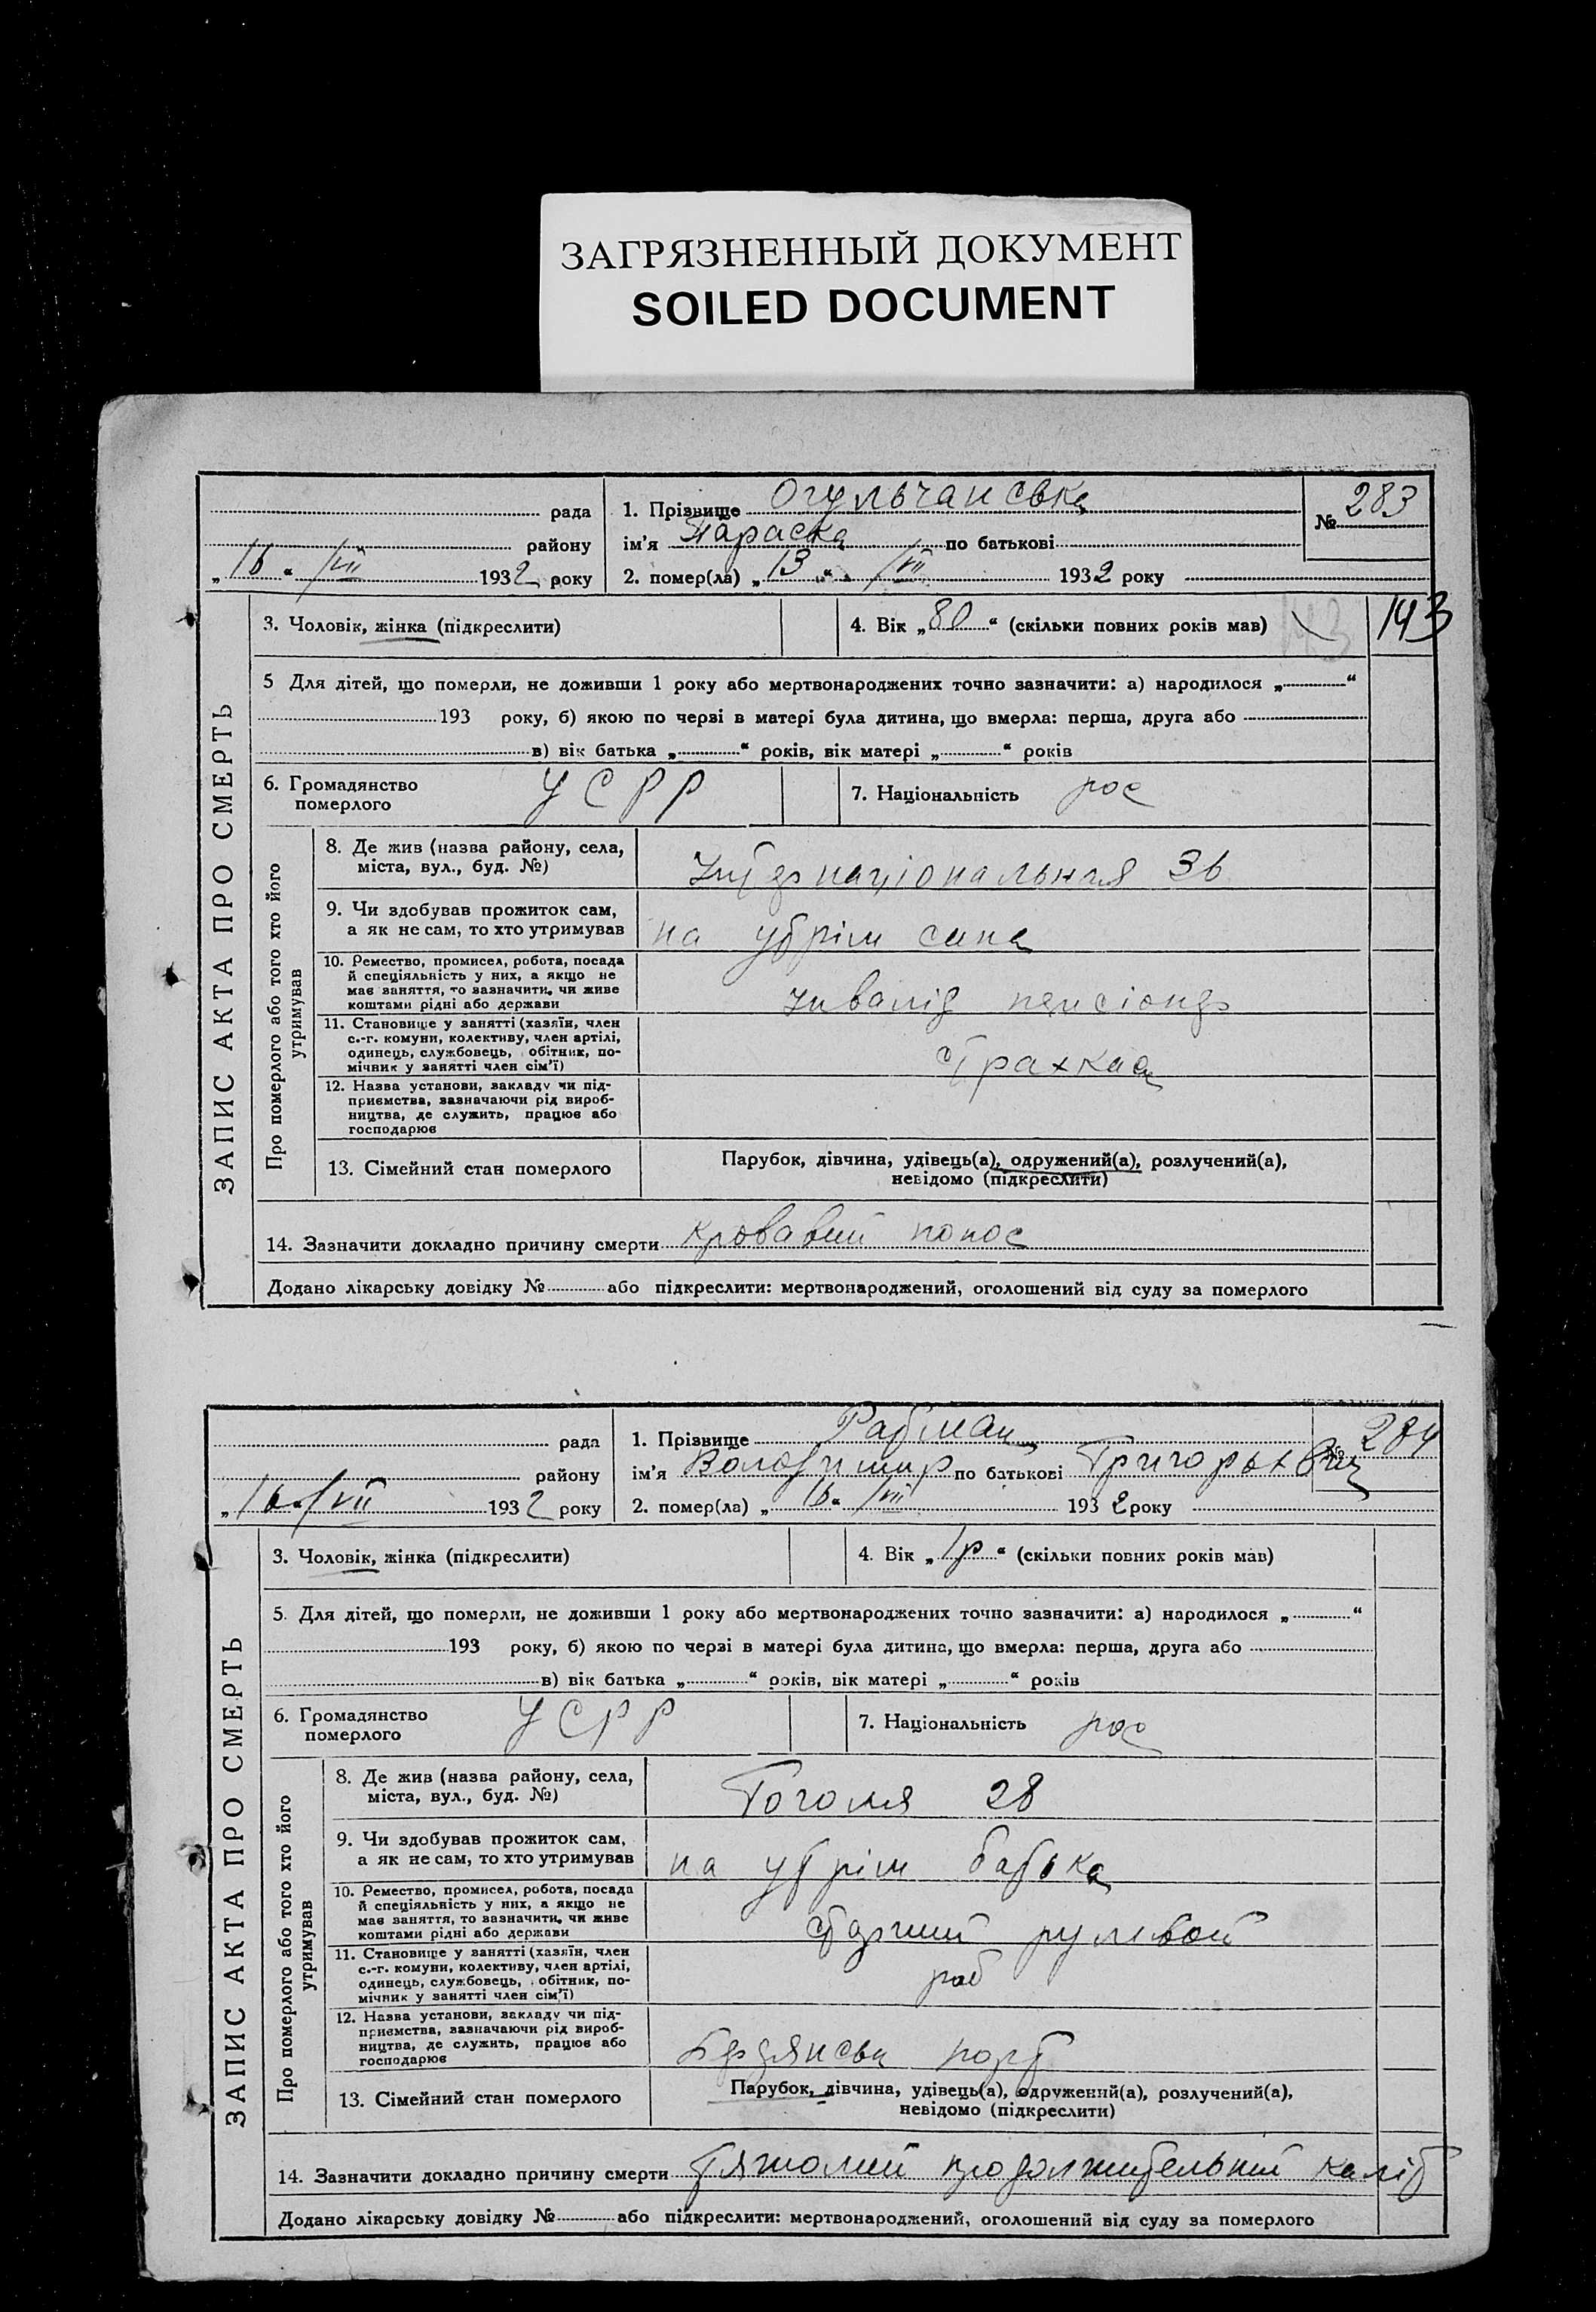 ЗАГРЯЗНЕННЫЙ ДОКУМЕНТ
SOILED DOCUMENT
рада
району
„16“ VII 1932 року
1. Прізвище Огульчанська
ім'я Параска по батькові
2. помер(ла) „13“ VII 1932 року
№ 283
ЗАПИС АКТА ПРО СМЕРТЬ
3. Чоловік, жінка (підкреслити)
4. Вік „80“ (скільки повних років мав)
143
5 Для дітей, що померли, не доживши 1 року або мертвонароджених точно зазначити: а) народилося „ “
193 року, б) якою по черзі в матері була дитина, що вмерла: перша, друга або
в) вік батька „ “ років, вік матері „ “ років
6. Громадянство
померлого
УСРР
7. Національність рос
Про померлого або того хто його
утримував
8. Де жив (назва району, села,
міста, вул., буд. №)
Інтернаціональная 36
9. Чи здобував прожиток сам,
а як не сам, то хто утримував
на утрім сина
10. Ремество, промисел, робота, посада
й спеціяльність у них, а якщо не
має заняття, то зазначити, чи живе
коштами рідні або держави
Інвалід пенсіонер
11. Становище у занятті (хазяїн, член
с.-г. комуни, колективу, член артілі,
одинець, службовець, обітник, по-
мічник у занятті член сім'ї)
12. Назва установи, закладу чи під-
приємства, зазначаючи рід вироб-
ництва, де служить, працює або
господарює
13. Сімейний стан померлого
Парубок, дівчина, удівець(а), одружений(а), розлучений(а),
невідомо (підкреслити)
14. Зазначити докладно причину смерти кровавий понос
Додано лікарську довідку № або підкреслити: мертвонароджений, оголошений від суду за померлого
рада
району
„16“ VII 1932 року
1. Прізвище
ім'я Володимир по батькові Григорьхвич
2. помер(ла) „16“ VII 1932 року
№ 284
ЗАПИС АКТА ПРО СМЕРТЬ
3. Чоловік, жінка (підкреслити)
4. Вік „1р“ (скільки повних років мав)
5. Для дітей, що померли, не доживши 1 року або мертвонароджених точно зазначити: а) народилося „ “
193 року, б) якою по черзі в матері була дитина, що вмерла: перша, друга або
в) вік батька „ “ років, вік матері „ “ років
6. Громадянство
померлого
УСРР
7. Національність рос
Про померлого або того хто його
утримував
8. Де жив (назва району, села,
міста, вул., буд. №)
Гоголя 28
9. Чи здобував прожиток сам,
а як не сам, то хто утримував
на утрім батька
10. Ремество, промисел, робота, посада
й спеціяльність у них, а якщо не
має заняття, то зазначити, чи живе
коштами рідні або держави
старший рулевой
11. Становище у занятті (хазяїн, член
с.-г. комуни, колективу, член артілі,
одинець, службовець, обітник, по-
мічник у занятті член сім'ї)
роб
12. Назва установи, закладу чи під-
приємства, зазначаючи рід вироб-
ництва, де служить, працює або
господарює
Бердянськ порт
13. Сімейний стан померлого
Парубок, дівчина, удівець(а), одружений(а), розлучений(а),
невідомо (підкреслити)
14. Зазначити докладно причину смерти тяжолий продолжительний каліт
Додано лікарську довідку № або підкреслити: мертвонароджений, оголошений від суду за померлого